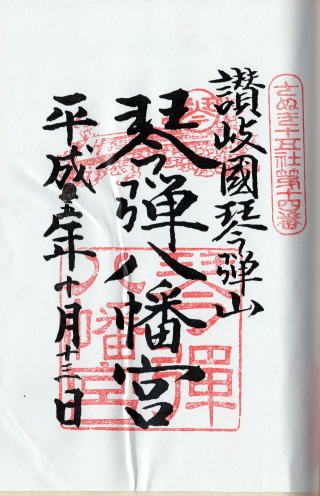 さぬき十五社第十四番
讃岐國琴弾山
琴弾八幡宮
平成五年十月十三日
琴彈
八幡宮